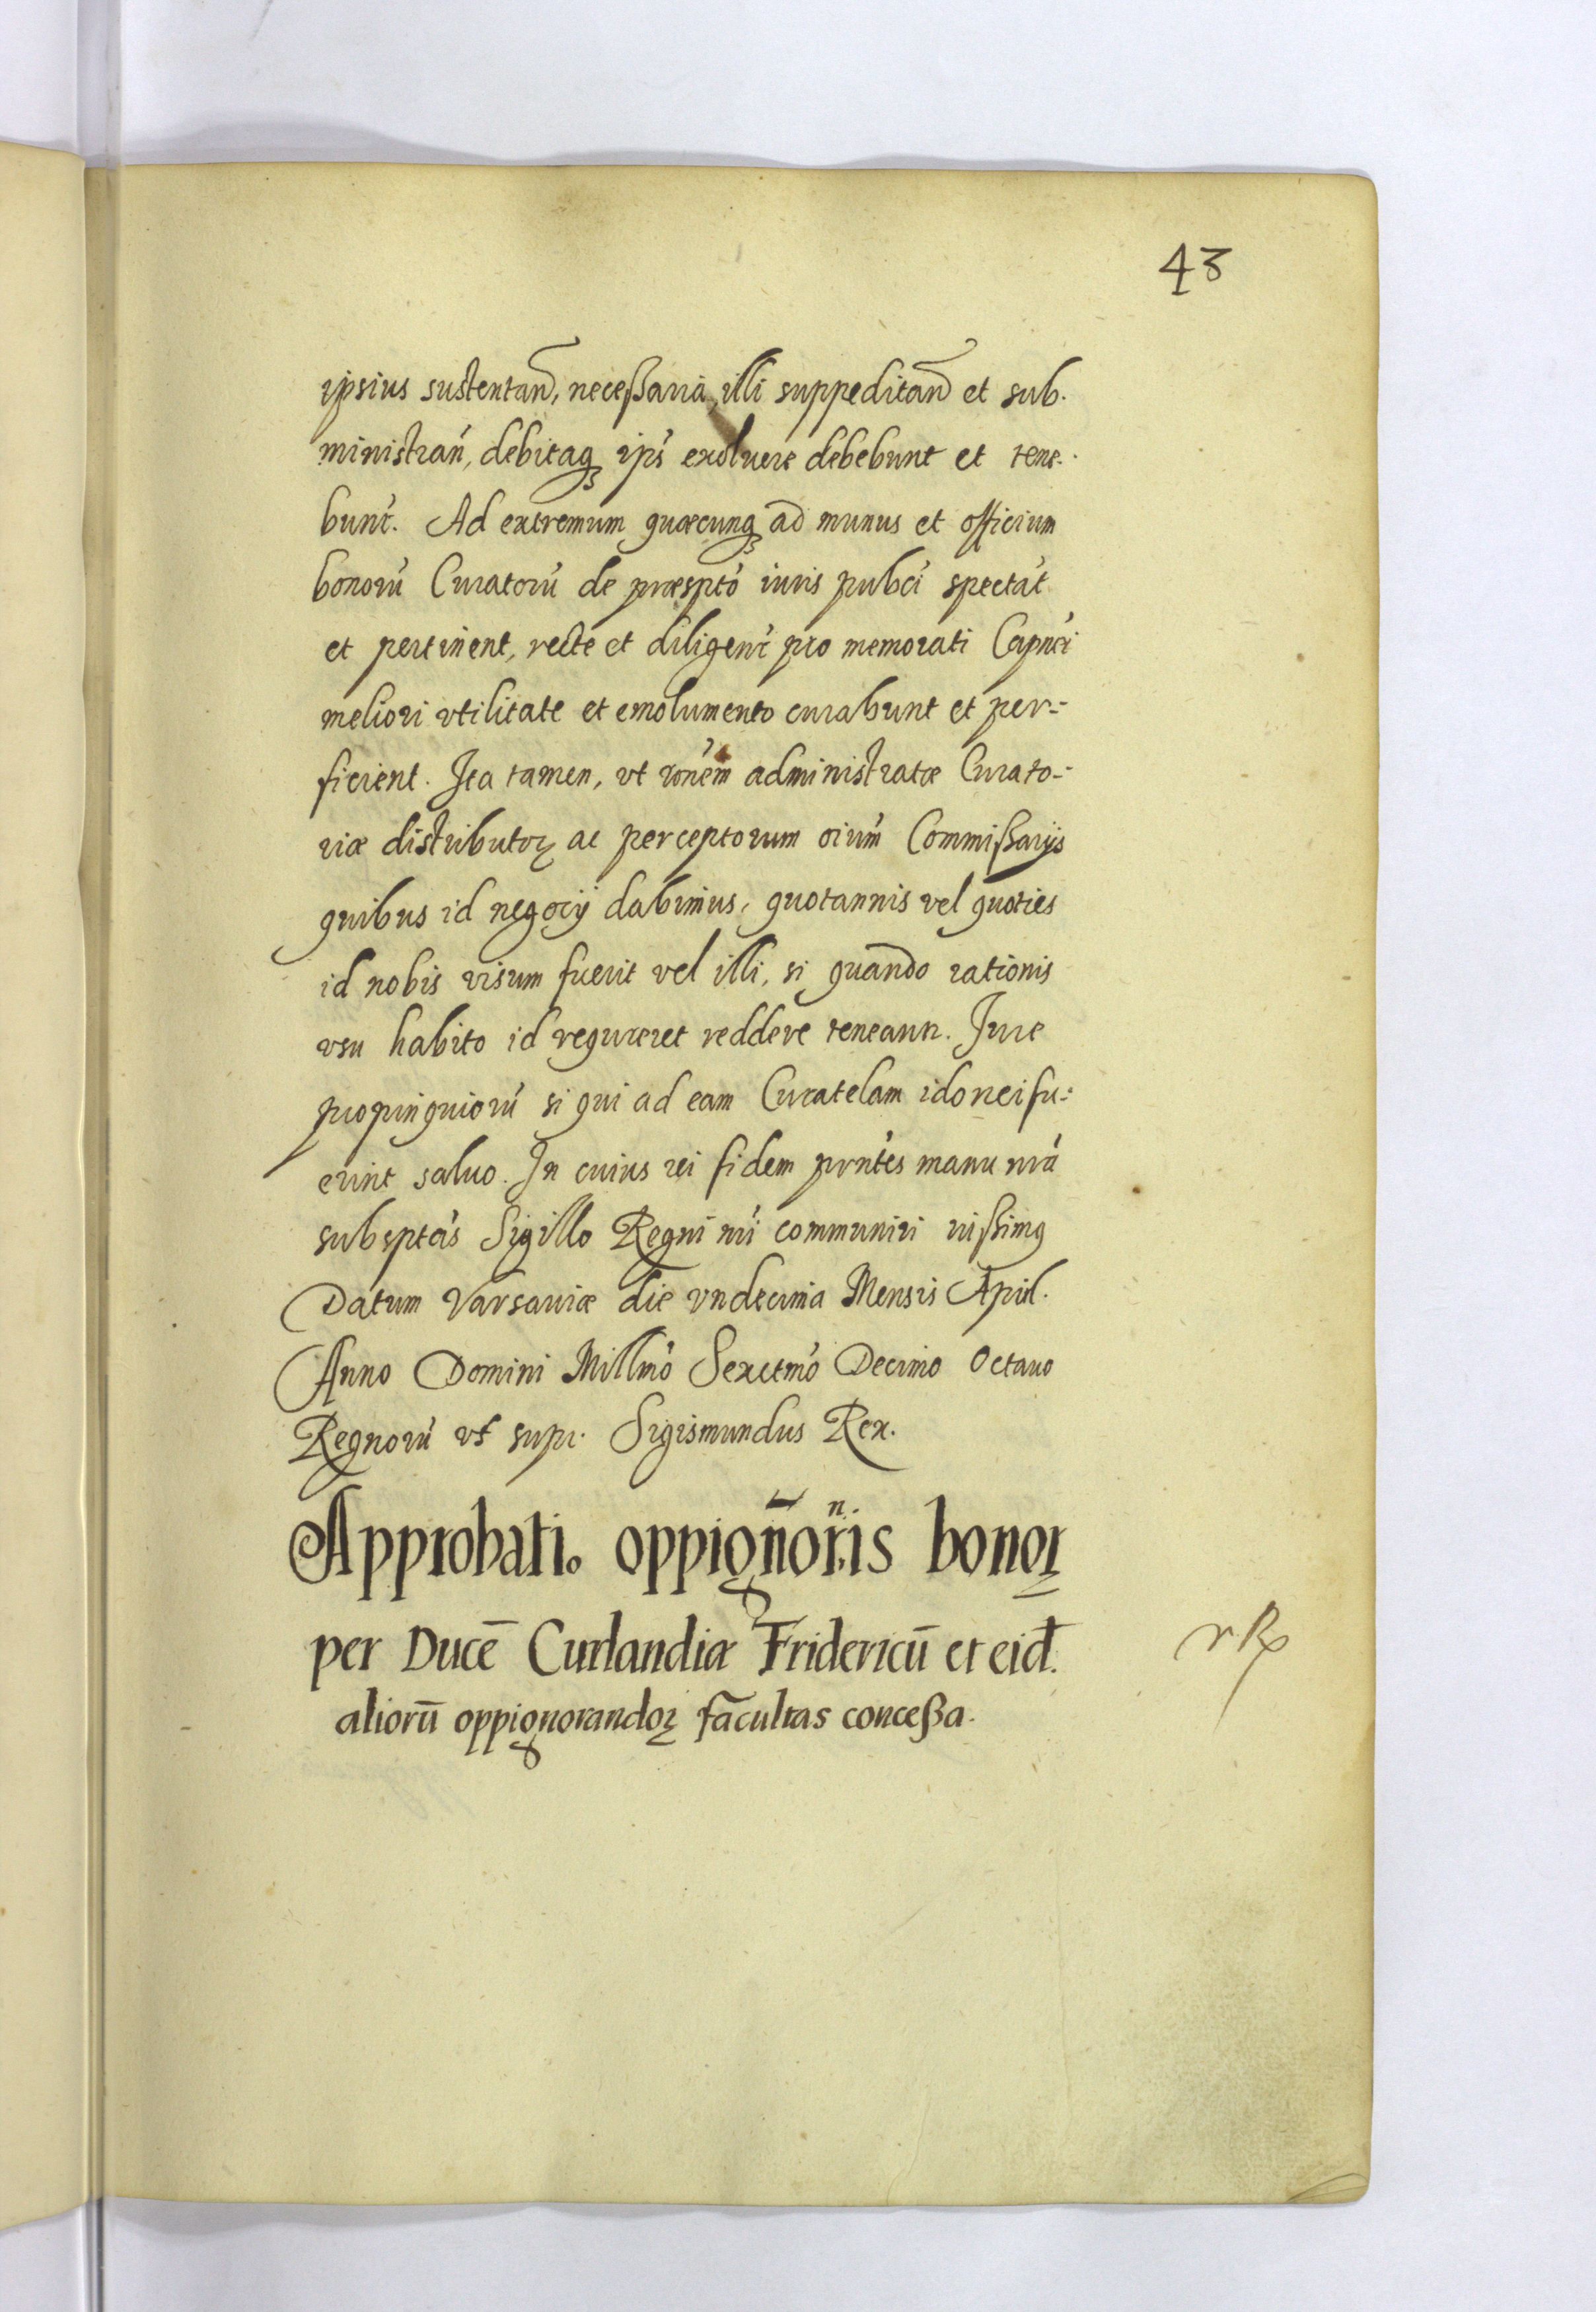 43
ipsius sustentan̄d, neceßaria, illi suppeditan̄d et sub-
ministran̄, debitaq̨ ip̄s exoluere debebunt et tene-
bunt̄. Ad extremum quæcunq̨ ad munus et officium
bonorū Curatorū de præsp̄to iuris pub̄ci spectāt
et pertinent, recte et diligent̄ pro memorati Capn̄ei
meliori vtilitate et emolumento curabunt et per-
ficient. Ita tamen, vt rōnem administratæ Curato-
riæ distributoꝝ ac perceptorum oium̄ Commißarijs
quibus id negocij dabimus, quotannis vel quoties
id nobis visum fuerit vel illi, si quando rationis
vsu habito id requireret reddere teneantr. Iure
propinquiorū si qui ad eam Curatelam idonei fu-
erint saluo. In cuius rei fidem prn̄tes manu nr̄a
subsptas̄ Sigillo Regni nr̄i communiri iußimꝰ
Datum Varsauiæ die vndecima Mensis April.
Anno Domini Millmō Sexctmō Decimo Octauo
Regnorū vt supr. Sigismundus Rex.
Approbatio oppign̄orn̄is bonoꝝ
per Ducē Curlandiæ Fridericū et eid.
aliorū oppignorandoꝝ facultas conceßa.